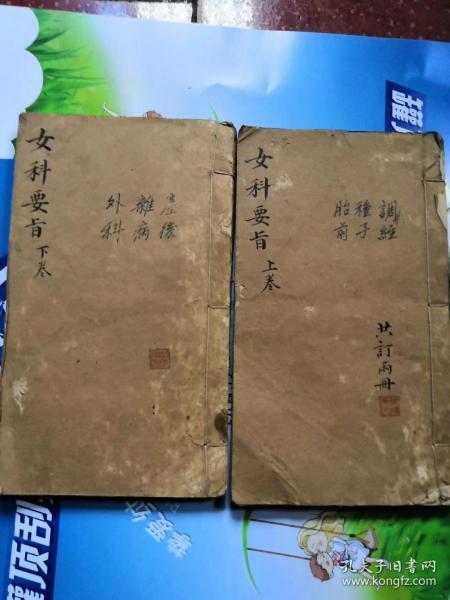 女科要旨
上卷
調經
種子
胎前
共訂兩冊
女科要旨
下卷
產後
雜病
外科
孔夫子旧书网
www.kongfz.com